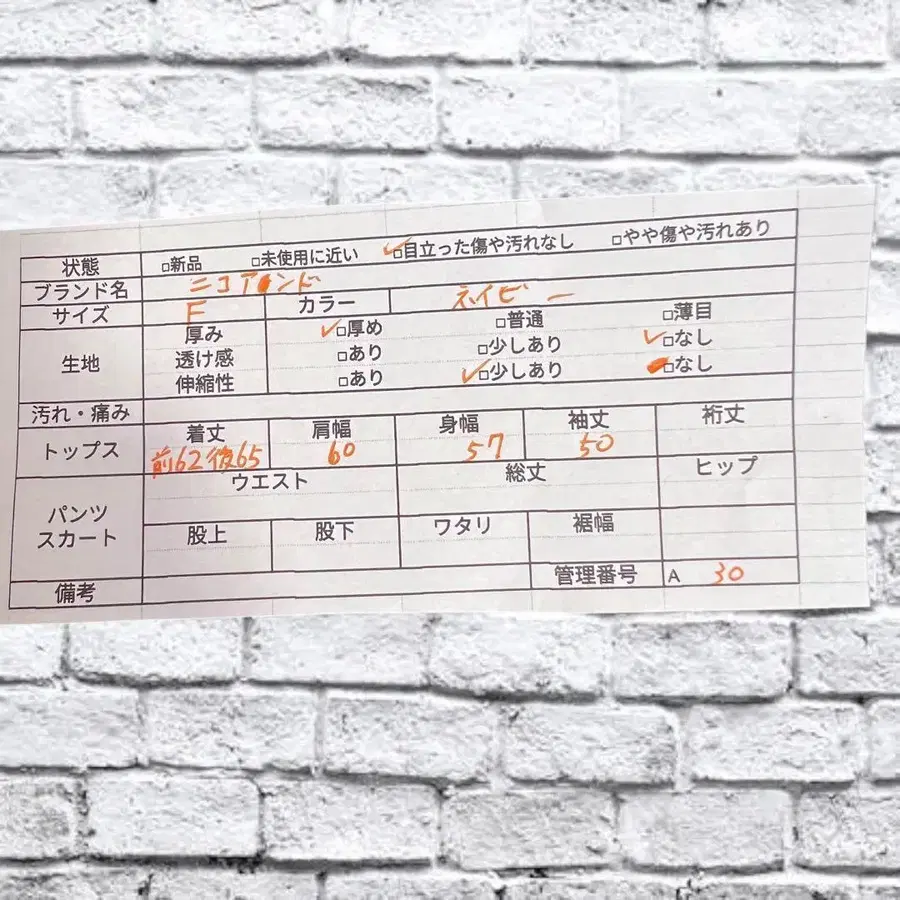 状態 □新品 □未使用に近い ✓□目立った傷や汚れなし □やや傷や汚れあり
ブランド名 ニコアンド
サイズ F カラー ネイビー
生地 厚み ✓□厚め □普通 □薄目
透け感 □あり □少しあり ✓□なし
伸縮性 □あり ✓□少しあり □なし
汚れ・痛み
トップス 着丈 肩幅 身幅 袖丈 裄丈
前62後65 60 57 50
パンツ スカート ウエスト 総丈 ヒップ
股上 股下 ワタリ 裾幅
備考 管理番号 A 30